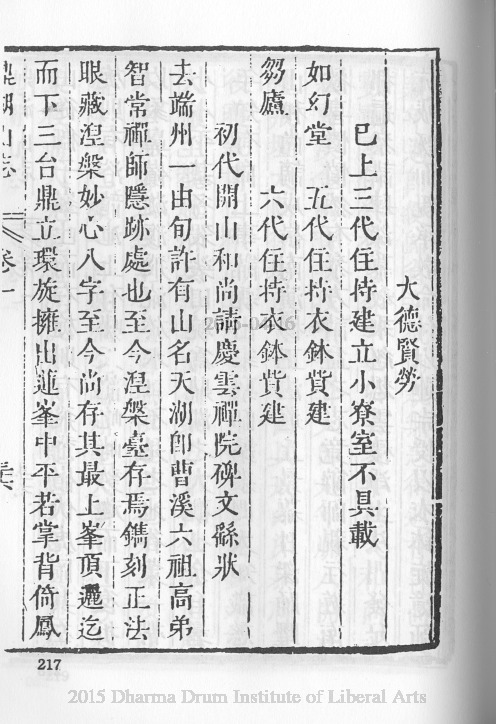 大德賢勞
已上三代住持建立小寮室不具載
如幻堂 五代住持衣鉢貲建
芻廬 六代住持衣鉢貲建
初代開山和尚請慶雲禪院碑文繇狀
去端州一由旬許有山名天湖卽曹溪六祖高弟
智常禪師隱跡處也至今湼槃臺存焉鐫刻正法
眼藏湼槃妙心八字至今尚存其最上峯頂邐迤
而下三台鼎立環旋擁出蓮峯中平若掌背倚鳳
鼎湖山志 卷一
217
2015 Dharma Drum Institute of Liberal Arts